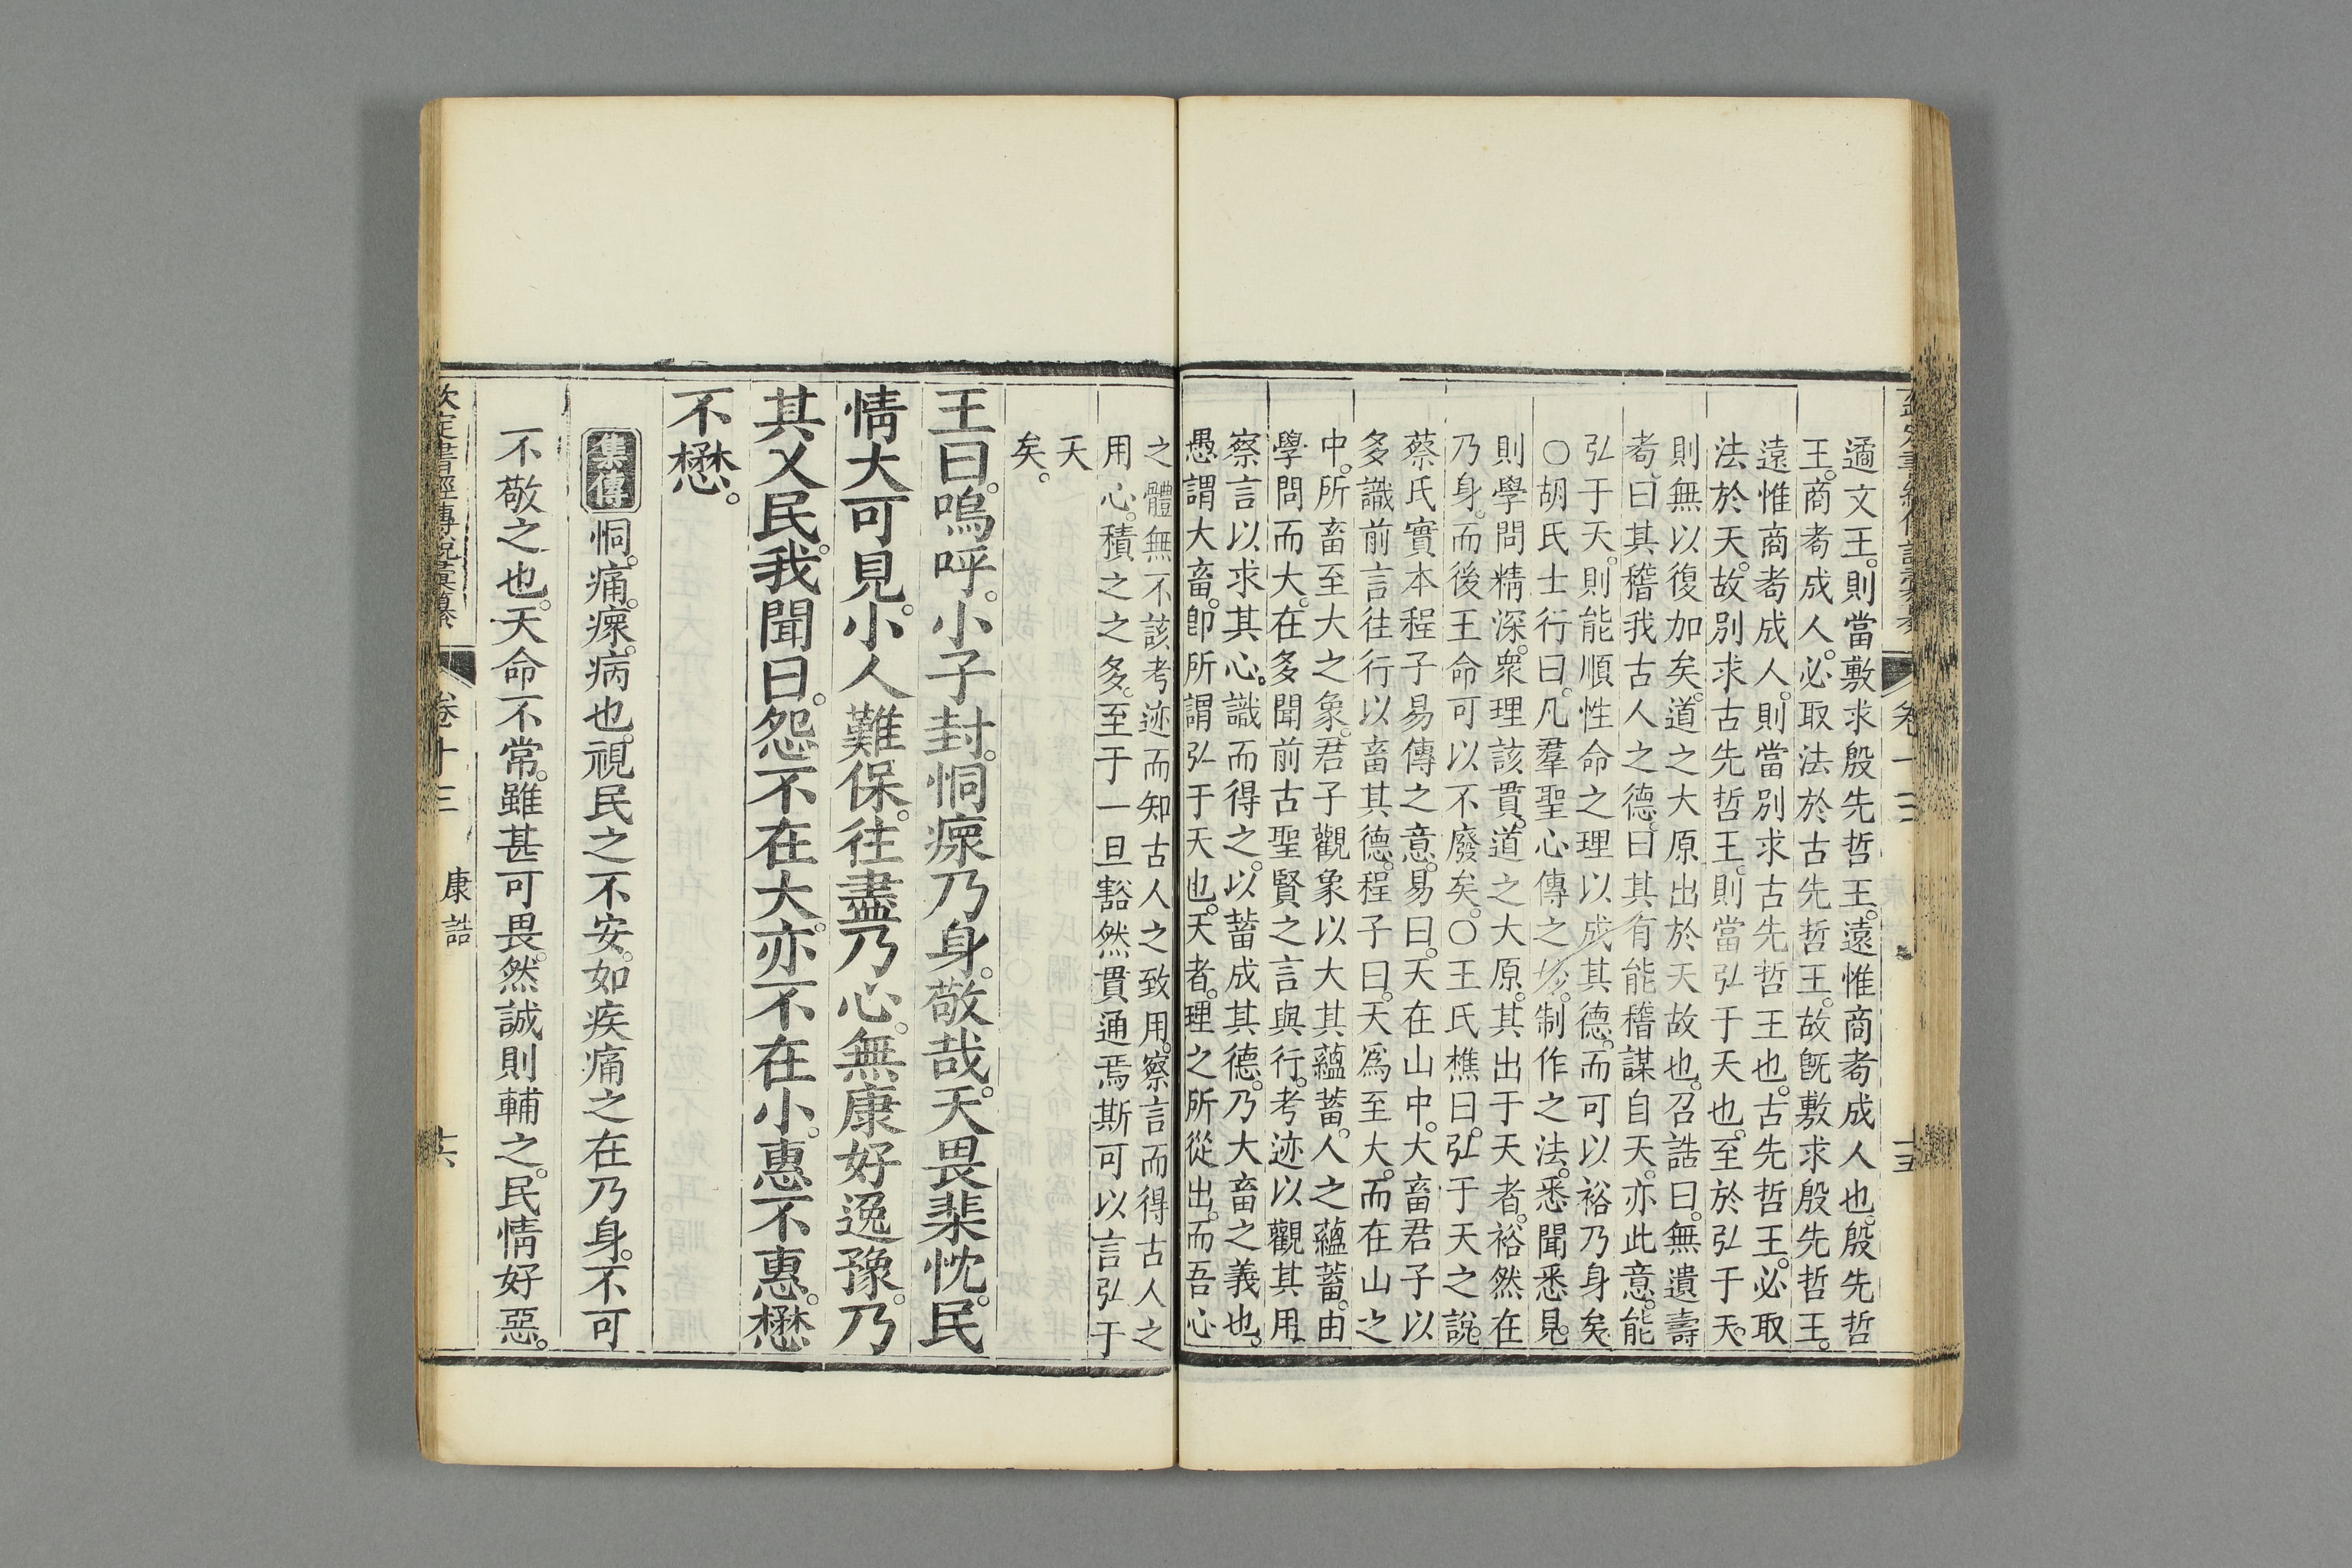 遹文王。則當敷求殷先哲王。遠惟商耇成人也。殷先哲
王。商耇成人。必取法於古先哲王。故旣敷求殷先哲王。
遠惟商耇成人。則當別求古先哲王也。古先哲王。必取
法於天。故別求古先哲王。則當弘于天也。至於弘于天。
則無以復加矣。道之大原出於天故也。召誥曰。無遺壽
耇。曰其稽我古人之德。曰其有能稽謀自天。亦此意。能
弘于天。則能順性命之理以成其德。而可以裕乃身矣。
○胡氏士行曰。凡羣聖心傳之妙。制作之法。悉聞悉見。
則學問精深。衆理該貫。道之大原。其出于天者。裕然在
乃身。而後王命可以不廢矣。○王氏樵曰。弘于天之說。
蔡氏實本程子易傳之意。易曰。天在山中。大畜君子以
多識前言往行以畜其德。程子曰。天爲至大。而在山之
中。所畜至大之象。君子觀象以大其蘊蓄。人之蘊蓄。由
學問而大。在多聞前古聖賢之言與行。考迹以觀其用。
察言以求其心。識而得之。以蓄成其德。乃大畜之義也。
愚謂大畜。卽所謂弘于天也。天者。理之所從出。而吾心
之體無不該考迹而知古人之致用。察言而得古人之
用心。積之之多。至于一旦豁然貫通焉斯可以言弘于
天
矣。
王曰。嗚呼。小子封。恫瘝乃身。敬哉。天畏棐忱。民
情大可見。小人難保。往盡乃心。無康好逸豫。乃
其乂民。我聞曰。怨不在大。亦不在小。惠不惠。懋
不懋。
集傳 恫。痛。瘝。病也。視民之不安。如疾痛之在乃身。不可
不敬之也。天命不常。雖甚可畏。然誠則輔之。民情好惡。
欽定書經傳說彙纂 卷十三 康誥 十六